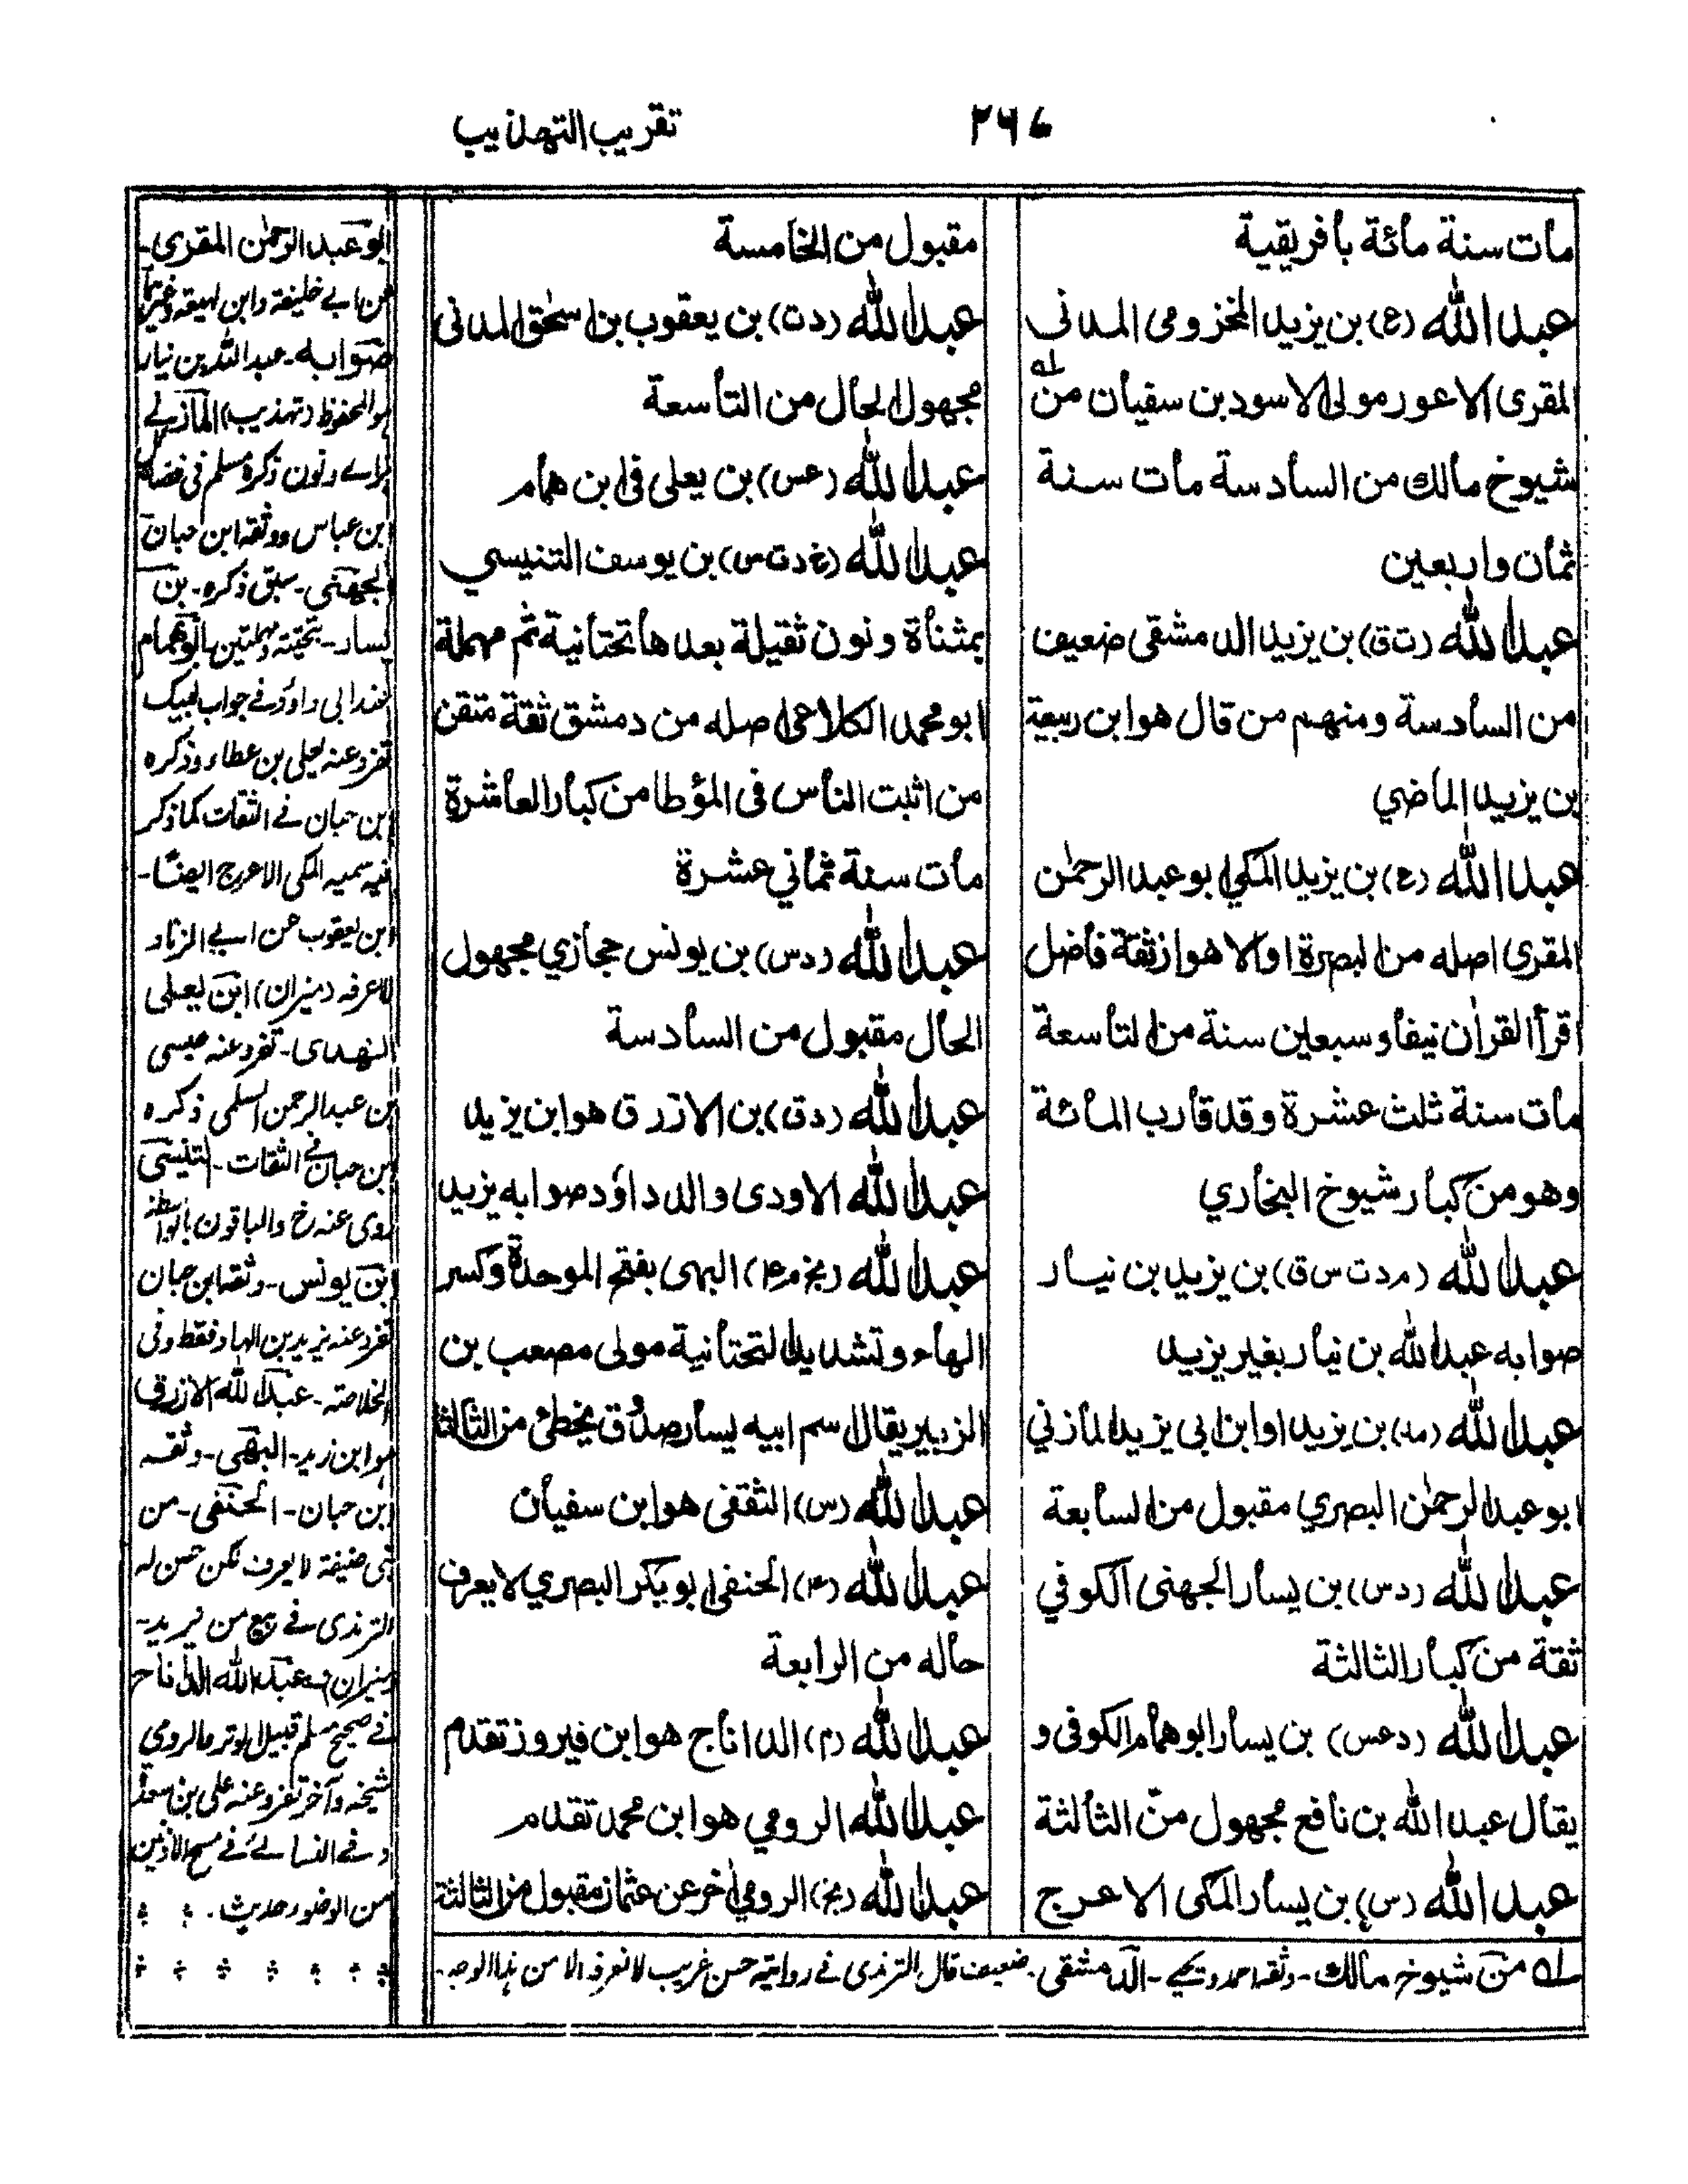 تقريب التهذيب
٢٦٦
مات سنة مائة بافريقية
عبد الله (ع) بن يزيد المخزومى المدنى
المقرى الاعور مولى الاسود بن سفيان من
شيوخ مالك من السادسة مات سنة
ثمان واربعين
عبد الله (ت ق) بن يزيد الدمشقى ضعيف
من السادسة ومنهم من قال هو ابن ربيعة
بن يزيد الماضي
عبد الله (ع) بن يزيد المكي ابو عبد الرحمٰن
المقرى اصله من البصرة او الاهواز ثقة فاضل
اقرأ القراٰن نيفا وسبعين سنة من التاسعة
مات سنة ثلث عشرة وقد قارب المائة
وهو من كبار شيوخ البخاري
عبد الله (م د ت س ق) بن يزيد بن نيار
صوابه عبد الله بن نيار بغير يزيد
عبد الله (مد) بن يزيد او ابن ابى يزيد المازني
ابو عبد الرحمٰن البصري مقبول من السابعة
عبد الله (د س) بن يسار الجهنى الكوفي
ثقة من كبار الثالثة
عبد الله (د عس) بن يسار ابو همام الكوفى و
يقال عبد الله بن نافع مجهول من الثالثة
عبد الله (س) بن يسار المكى الاعرج
مقبول من الخامسة
عبد الله (د ت) بن يعقوب بن اسحٰق المدنى
مجهول الحال من التاسعة
عبد الله (عس) بن يعلى فى ابن همام
عبد الله (خ د ت س) بن يوسف التنيسي
بمثناة ونون ثقيلة بعدها تحتانية ثم مهملة
ابو محمد الكلاعى اصله من دمشق ثقة متقن
من اثبت الناس فى المؤطا من كبار العاشرة
مات سنة ثماني عشرة
عبد الله (د س) بن يونس حجازي مجهول
الحال مقبول من السادسة
عبد الله (د ق) بن الازرق هو ابن يزيد
عبد الله الاودى والد داؤد صوابه يزيد
عبد الله (بخ م ٤) البهى بفتح الموحدة وكسر
الهاء وتشديد التحتانية مولى مصعب بن
الزبير يقال اسم ابيه يسار صدوق يخطئ من الثالثة
عبد الله (س) الثقفى هو ابن سفيان
عبد الله (٤) الحنفى ابو بكر البصري لا يعرف
حاله من الرابعة
عبد الله (م) الداناج هو ابن فيروز تقدم
عبد الله الرومي هو ابن محمد تقدم
عبد الله (بخ) الرومي اٰخر عن عثمان مقبول من الثالثة
ابو عبد الرحمٰن المقرى-
عن ابے خليفة وابن لهيعة وغيرهما
صوابه- عبد الله بن نيار
هو المحفوظ (تهذيب) المازنے
بزاے ونون ذكره مسلم فى
ابن عباس ووثقه ابن حبان
الجهنى- سبق ذكره- بن
يسار- بتحتية ومهملتين ابو همام
عند ابى داؤد فے جواب لبيك
تفرد عنه يعلى بن عطاء وذكره
ابن حبان فے الثقات كما ذكر
فيه سميه المكى الاعرج ايضًا-
ابن يعقوب عن ابے الزناد
لا اعرفه (ميزان) ابن يعلى
النهدى- تفرد عنه عيسى
بن عبد الرحمن السلمى ذكره
ابن حبان فے الثقات- التنيسى
روى عنه خ والباقون بالواسطة
ابن يونس- وثقه ابن حبان
تفرد عنه يزيد بن الهاد فقط وفى
الخلاصة- عبد الله الازرق
هو ابن زيد- البهى- وثقه
ابن حبان- الحنفى- من
لا يعرف لكن حسن له
الترمذى فے بيع من يزيد-
ميزان عبد الله الداناج
فے صحيح مسلم قبيل الوتر الرومي
شيخه وآخر تفرد عنه على بن
وفے النسائے فے مسح الاذنين
من الوضوء حديث.
لـه من شيوخ مالك- وثقه احمد ويحيے- الدمشقى- ضعيف قال الترمذى فے روايته حسن غريب لا نعرفه الا من هذا الوجه-